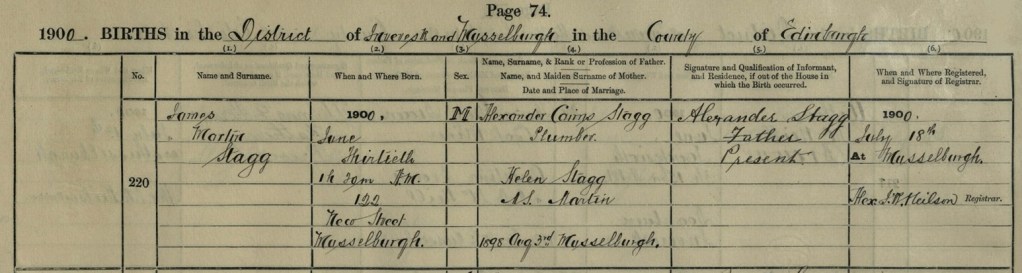 Page 74.
1900. BIRTHS in the District of Inveresk and Musselburgh in the County of Edinburgh
(1.) (2.) (3.) (4.) (5.) (6.)
No.
Name and Surname.
When and Where Born.
Sex.
Name, Surname, & Rank or Profession of Father.
Name, and Maiden Surname of Mother.
Date and Place of Marriage.
Signature and Qualification of Informant,
and Residence, if out of the House in
which the Birth occurred.
When and Where Registered,
and Signature of Registrar.
220
James
Martin
Stagg
1900,
June
Thirtieth
1h 3 m A.M.
122
New Street
Musselburgh.
M
Alexander Stagg
Plumber.
Helen Stagg
M.S. Martin
1898 Aug 3rd Musselburgh.
Alexander Stagg
Father
Present
1900.
July 18th
At Musselburgh.
Alex. Neilson Registrar.